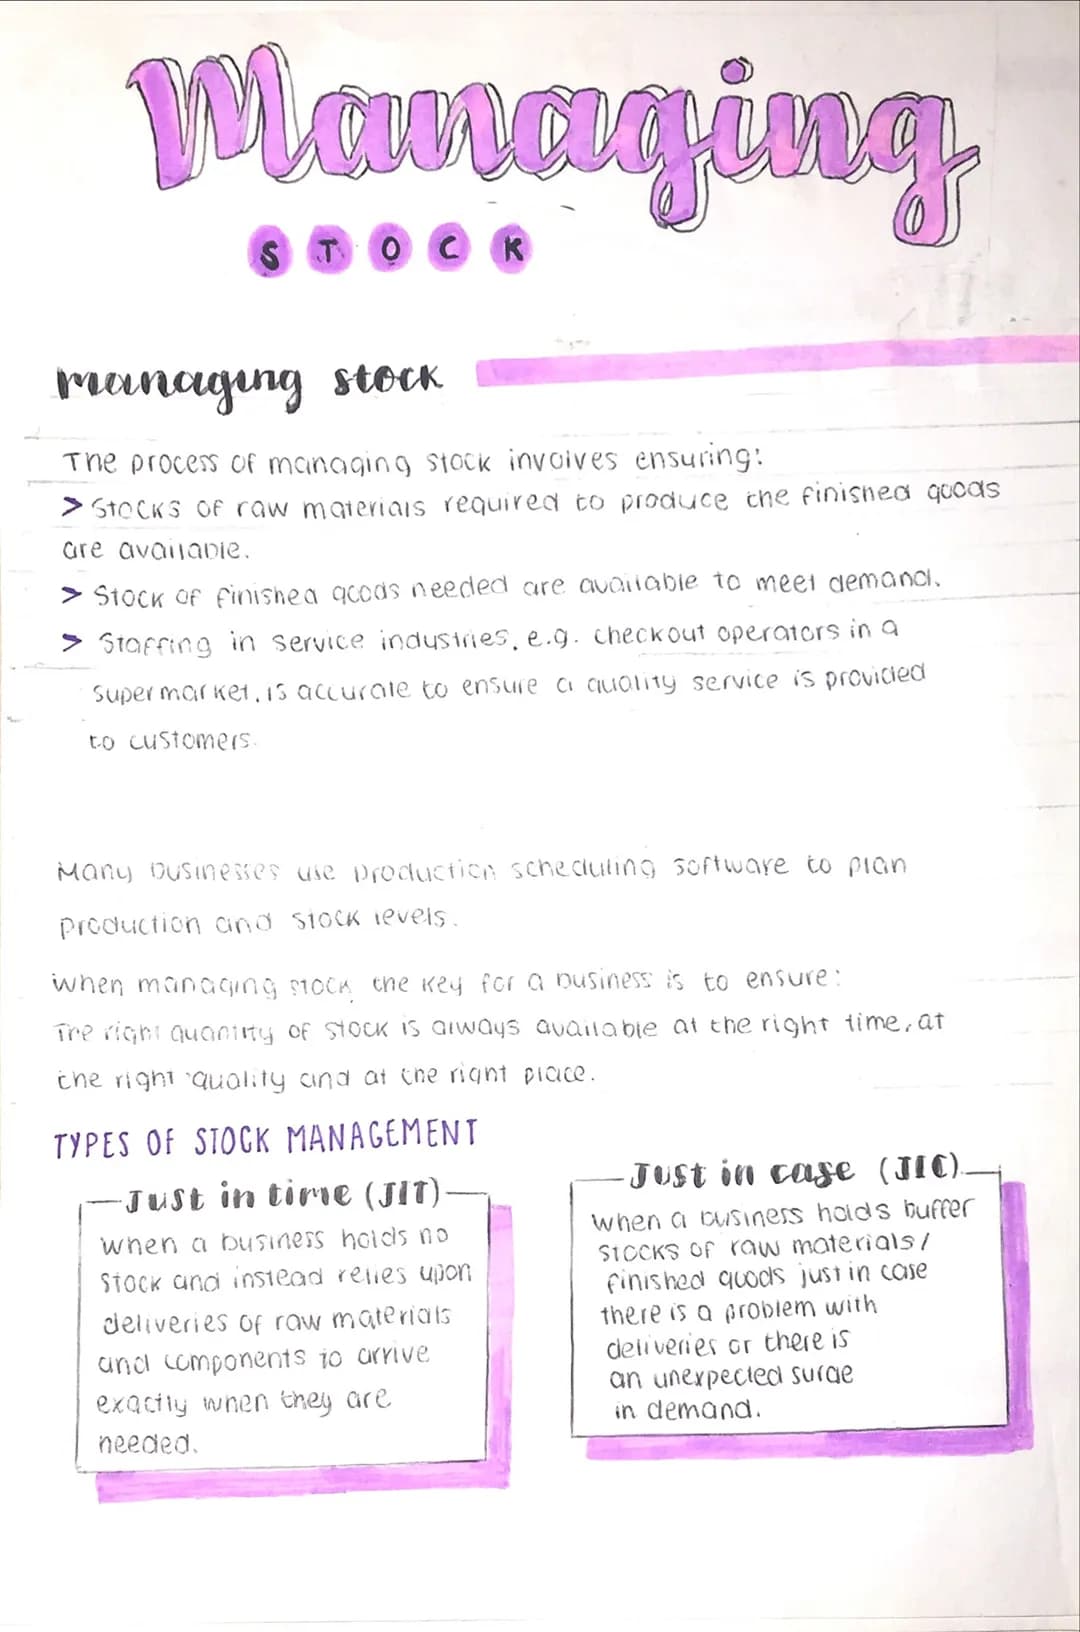 Managing
STOCK
managing stock
The process of managing stock involves ensuring:
> Stocks of raw materials required to produce the finished goods
are available.
> Stock of finished goods needed are available to meet demand.
> Staffing in service industries, e.g. checkout operators in a
supermarket, is accurate to ensure a quality service is provided
to customers.
Many businesses use production scheduling software to plan
production and stock levels.
when managing stock the key for a business is to ensure:
The right quantity of stock is always available at the right time, at
the right quality and at the right place.
TYPES OF STOCK MANAGEMENT
Just in time (JIT)
when a business holds no
stock and instead relies upon
deliveries of raw materials
and components to arrive
exactly when they are
needed.
Just in case (JIC)
when a business holds buffer
stocks of raw materials/
finished goods just in case
there is a problem with
deliveries or there is
an unexpected surge
in demand.